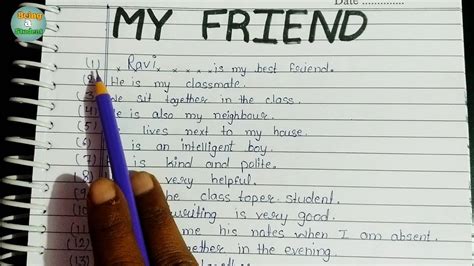 Being
&
Student
Date
MY FRIEND
(1) Ravi is my best friend.
(2) He is my classmate.
(3) We sit together in the class.
(4) He is also my neighbour.
(5) lives next to my house.
(6) is an intelligent boy.
(7) is kind and polite.
(8) very helpful.
(9) the class toper student.
(10) writing is very good.
(11) me his notes when I am absent.
(12) together in the evening.
(13)